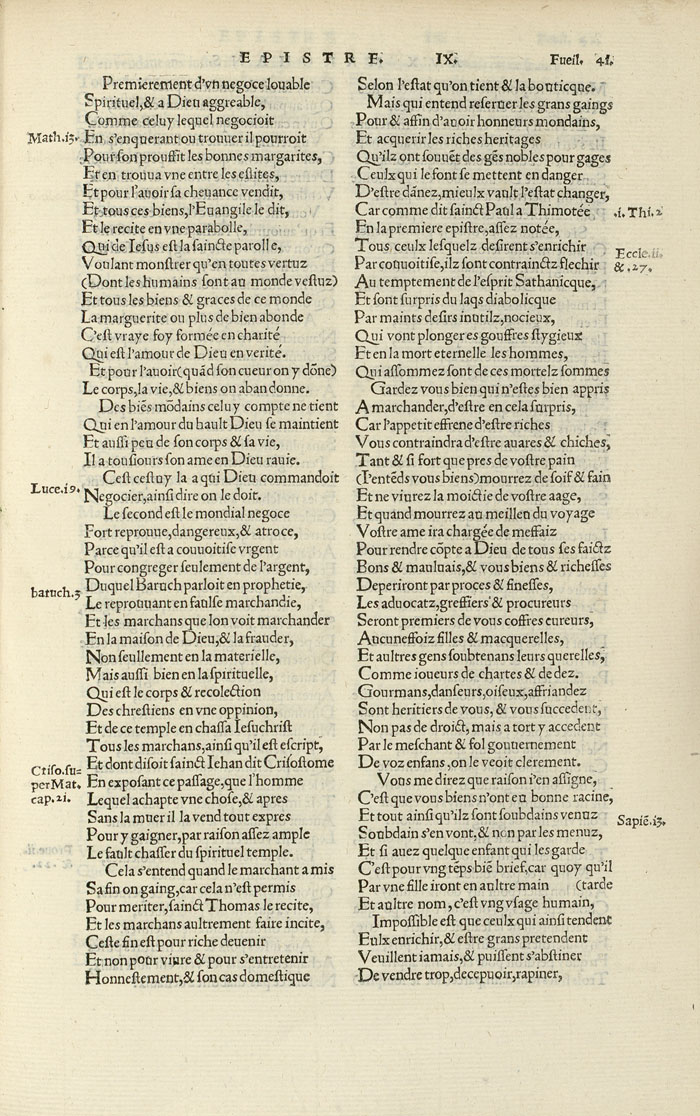 EPISTRE. IX. Fueil. 41.
Premierement d'vn negoce louable
Spirituel,& a Dieu aggreable,
Comme celuy lequel negocioit
Math.i3. En s'enquerant ou trouuer il pourroit
Pour son prouffit les bonnes margarites,
Et en trouua vne entre les eslites,
Et pour l'auoir sa cheuance vendit,
Et tous ces biens,l'Euangile le dit,
Et le recite en vne parabolle,
Qui de Iesus est la saincte parolle,
Voulant monstrer qu'en toutes vertuz
(Dont les humains sont au monde vestuz)
Et tous les biens & graces de ce monde
La marguerite ou plus de bien abonde
C'est vraye foy formée en charité
Qui est l'amour de Dieu en verité.
Et pour l'auoir(quãd son cueur on y dõne)
Le corps,la vie,& biens on abandonne.
Des biẽs mõdains celuy compte ne tient
Qui en l'amour du hault Dieu se maintient
Et aussi peu de son corps & sa vie,
Il a tousiours son ame en Dieu rauie.
C'est cestuy la a qui Dieu commandoit
Luce.i9. Negocier,ainsi dire on le doit.
Le second est le mondial negoce
Fort reprouue,dangereux,& atroce,
Parce qu'il est a couuoitise vrgent
Pour congreger seulement de l'argent,
Duquel Baruch parloit en prophetie,
baruch.3 Le reprouuant en faulse marchandie,
Et les marchans que lon voit marchander
En la maison de Dieu,& la frauder,
Non seullement en la materielle,
Mais aussi bien en la spirituelle,
Qui est le corps & recolection
Des chrestiens en vne oppinion,
Et de ce temple en chassa Iesuchrist
Tous les marchans,ainsi qu'il est escript,
Et dont disoit sainct Iehan dit Crisostome
Criso.su=
perMat.
cap.21.
En exposant ce passage,que l'homme
Lequel achapte vne chose,& apres
Sans la muer il la vend tout expres
Pour y gaigner,par raison assez ample
Le fault chasser du spirituel temple.
Cela s'entend quand le marchant a mis
Sa fin on gaing,car cela n'est permis
Pour meriter,sainct Thomas le recite,
Et les marchans aultrement faire incite,
Ceste fin est pour riche deuenir
Et non pour viure & pour s'entretenir
Honnestement,& son cas domestique
Selon l'estat qu'on tient & la bouticque.
Mais qui entend reseruer les grans gaings
Pour & affin d'auoir honneurs mondains,
Et acquerir les riches heritages
Qu'ilz ont souuẽt des gẽs nobles pour gages
Ceulx qui le font se mettent en danger
D'estre dãnez,mieulx vault l'estat changer,
Car comme dit sainct Paul a Thimotée .i.Thi.2
En la premiere epistre,assez notée,
Tous ceulx lesquelz desirent s'enrichir
Par conuoitise,ilz sont contrainctz flechir
Eccle.ii.
&.27.
Au temptement de l'esprit Sathanicque,
Et sont surpris du laqs diabolicque
Par maints desirs inutilz,nocieux,
Qui vont plonger es gouffres stygieux
Et en la mort eternelle les hommes,
Qui assommez sont de ces mortelz sommes
Gardez vous bien qui n'estes bien appris
A marchander,d'estre en cela surpris,
Car l'appetit effrene d'estre riches
Vous contraindra d'estre auares & chiches,
Tant & si fort que pres de vostre pain
(I'entẽds vous biens)mourrez de soif & fain
Et ne viurez la moictie de vostre aage,
Et quand mourrez au meillen du voyage
Vostre ame ira chargée de meffaiz
Pour rendre cõpte a Dieu de tous ses faictz
Bons & mauluais,& vous biens & richesses
Deperiront par proces & finesses,
Les aduocatz,greffiers & procureurs
Seront premiers de vous coffres cureurs,
Aucuneffoiz filles & macquerelles,
Et aultres gens soubtenans leurs querelles,
Comme ioueurs de chartes & de dez.
Gourmans,danseurs,oiseux,affriandez
Sont heritiers de vous, & vous succedent,
Non pas de droict, mais a tort y accedent
Par le meschant & fol gouuernement
De voz enfans,on le veoit clerement.
Vous me direz que raison i'en assigne,
C'est que vous biens n'ont eu bonne racine,
Et tout ainsi qu'ilz sont soubdains venuz
Sapiẽ.i3.
Soubdain s'en vont,& non par les menuz,
Et si auez quelque enfant qui les garde
C'est pour vng tẽps biẽ brief,car quoy qu'il
Par vne fille iront en aultre main (tarde
Et aultre nom,c'est vng vsage humain,
Impossible est que ceulx qui ainsi tendent
Eulx enrichir,& estre grans pretendent
Veuillent iamais,& puissent s'abstiner
De vendre trop,decepuoir,rapiner,